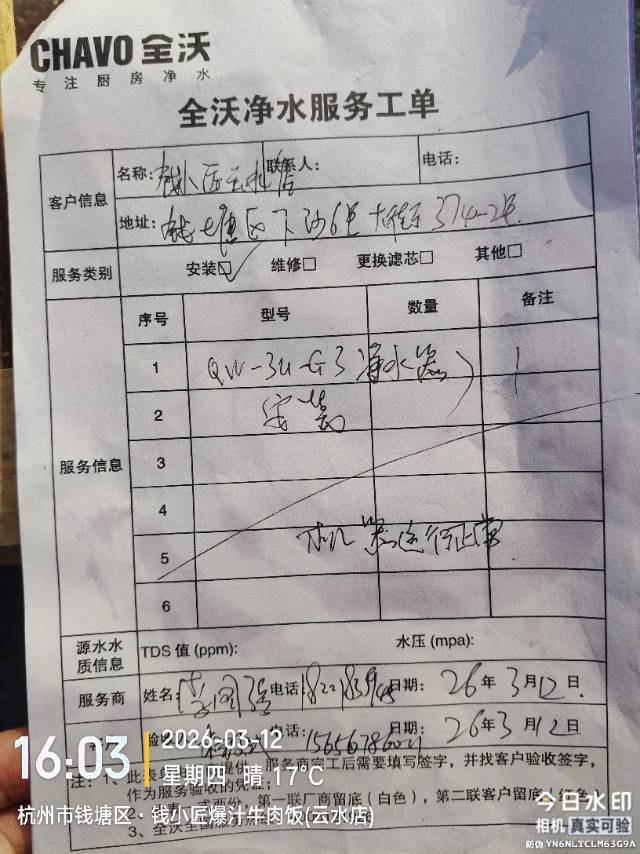 CHAVO 全沃
专注厨房净水
全沃净水服务工单
客户信息
名称: 钱小匠云水店 联系人: 电话:
地址: 钱塘区下沙6号大街 374-2号
服务类别 安装☑ 维修□ 更换滤芯□ 其他□
服务信息
序号 型号 数量 备注
1 QW-3U-G3净水器 1
2 安装
3
4
5 机器运行正常
6
源水水质信息 TDS 值 (ppm): 水压 (mpa):
服务商 姓名: 电话: 日期: 26年 3月12日
验收 电话: 日期: 26年3月12日
注: 1、此表 提供, 服务商完工后需要填写签字, 并找客户验收签字,
作为服务验收的凭证;
2、 一式两份, 第一联厂商留底 (白色), 第二联客户留底
3、全沃全国服务热
16:03
2026-03-12
星期四 晴 17℃
杭州市钱塘区·钱小匠爆汁牛肉饭(云水店)
今日水印
相机 真实可验
防伪 YN6NLTCLM63G9A